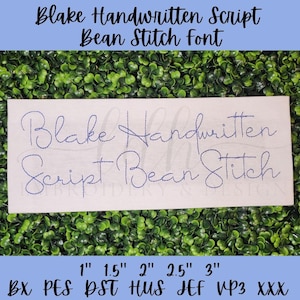 Blake Handwritten Script
Bean Stitch Font
Blake Handwritten
Script Bean Stitch
1" 1.5" 2" 2.5" 3"
BX PES DST HUS JEF VP3 XXX